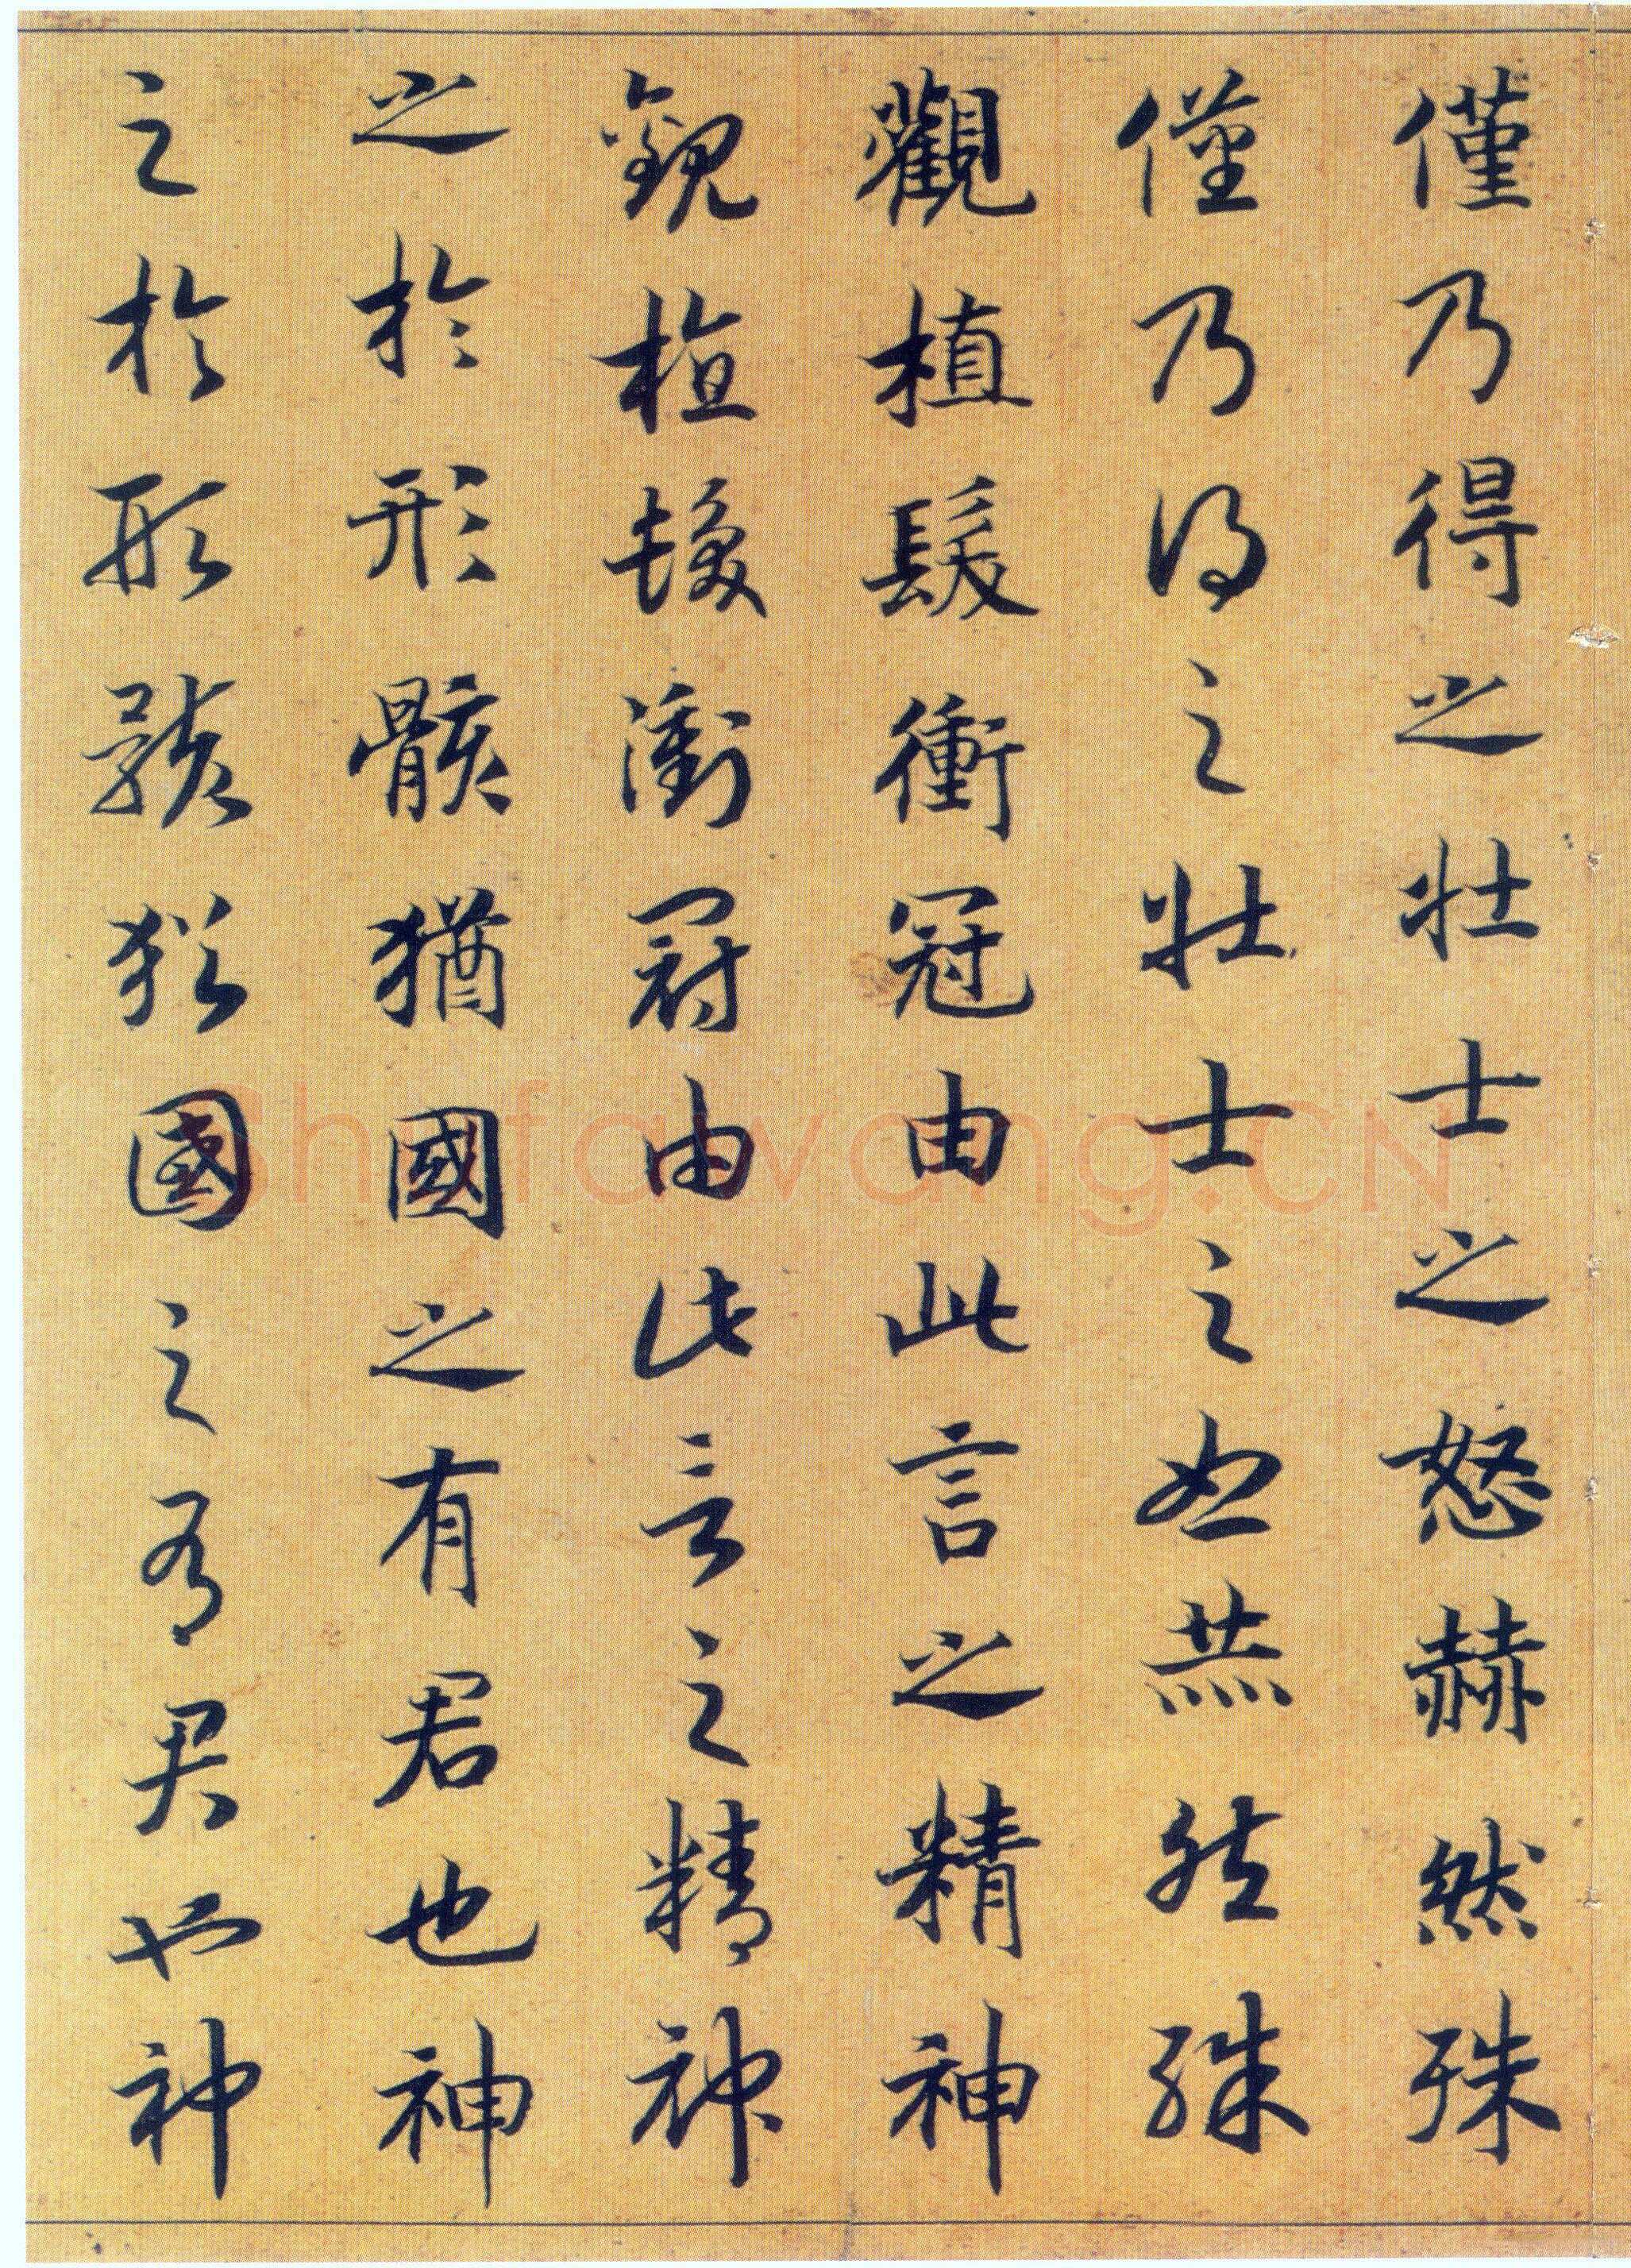 僅乃得之壯士之怒赫然殊
僅乃得之壯士之怒赫然殊
觀植髮衝冠由此言之精神
觀植髮衝冠由此言之精神
之於形骸猶國之有君也神
之於形骸猶國之有君也神
Shufawang.CN